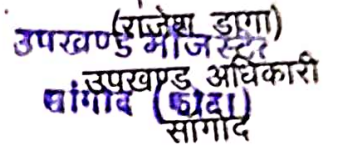 (राजेश डागा)
उपखण्ड मजिस्ट्रेट
उपखण्ड अधिकारी
सांगोद (कोटा)
सांगोद